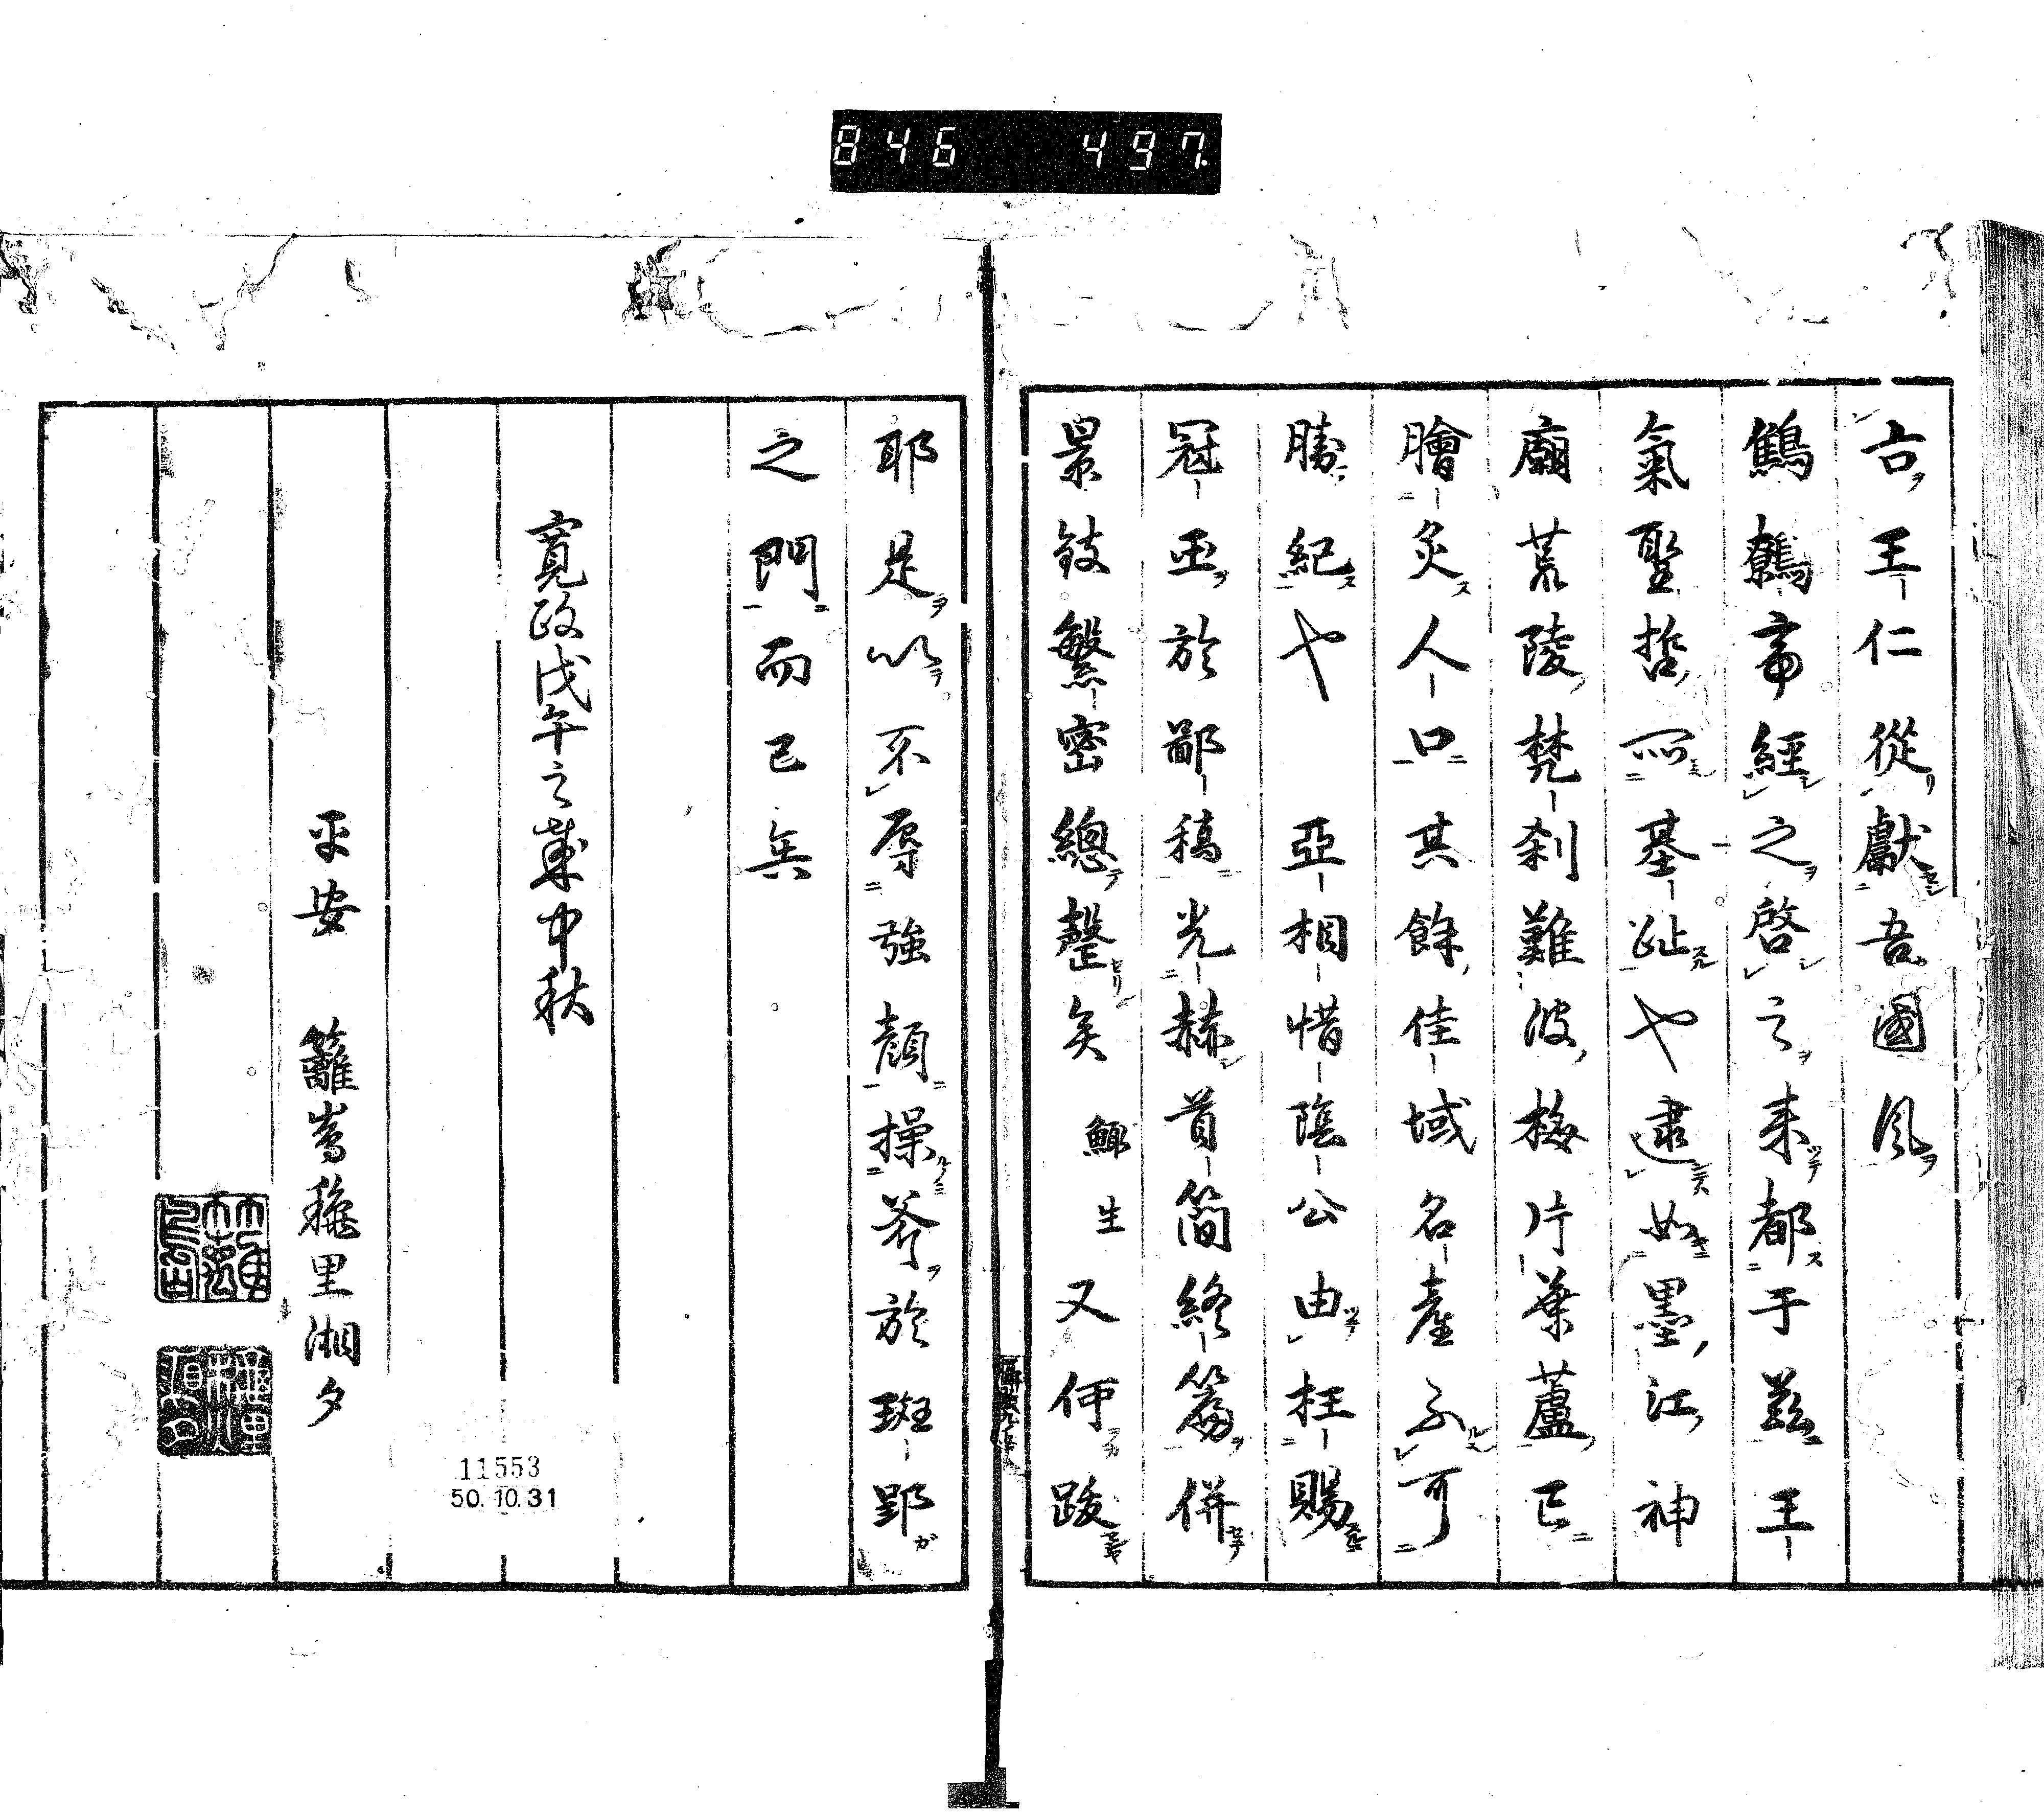 846 497.
古王仁從獻吾國風
鶺鴒帝經之啓之来都于玆王
氣聖哲所基趾也逮如墨江神
廟荒陵梵刹難波梅片葉蘆已
膾炙人口其餘佳域名產不可
勝紀也 亞相惜陰公由枉賜
冠玉於鄙稿光赫首簡終篇併
景致繁密總整矣 鯫生又何跋
耶是以不辱強顔操斧於斑郢
之門而已矣
寛政戊午之歳中秋
平安 籬嶌穐里湘夕
11553
50.10.31